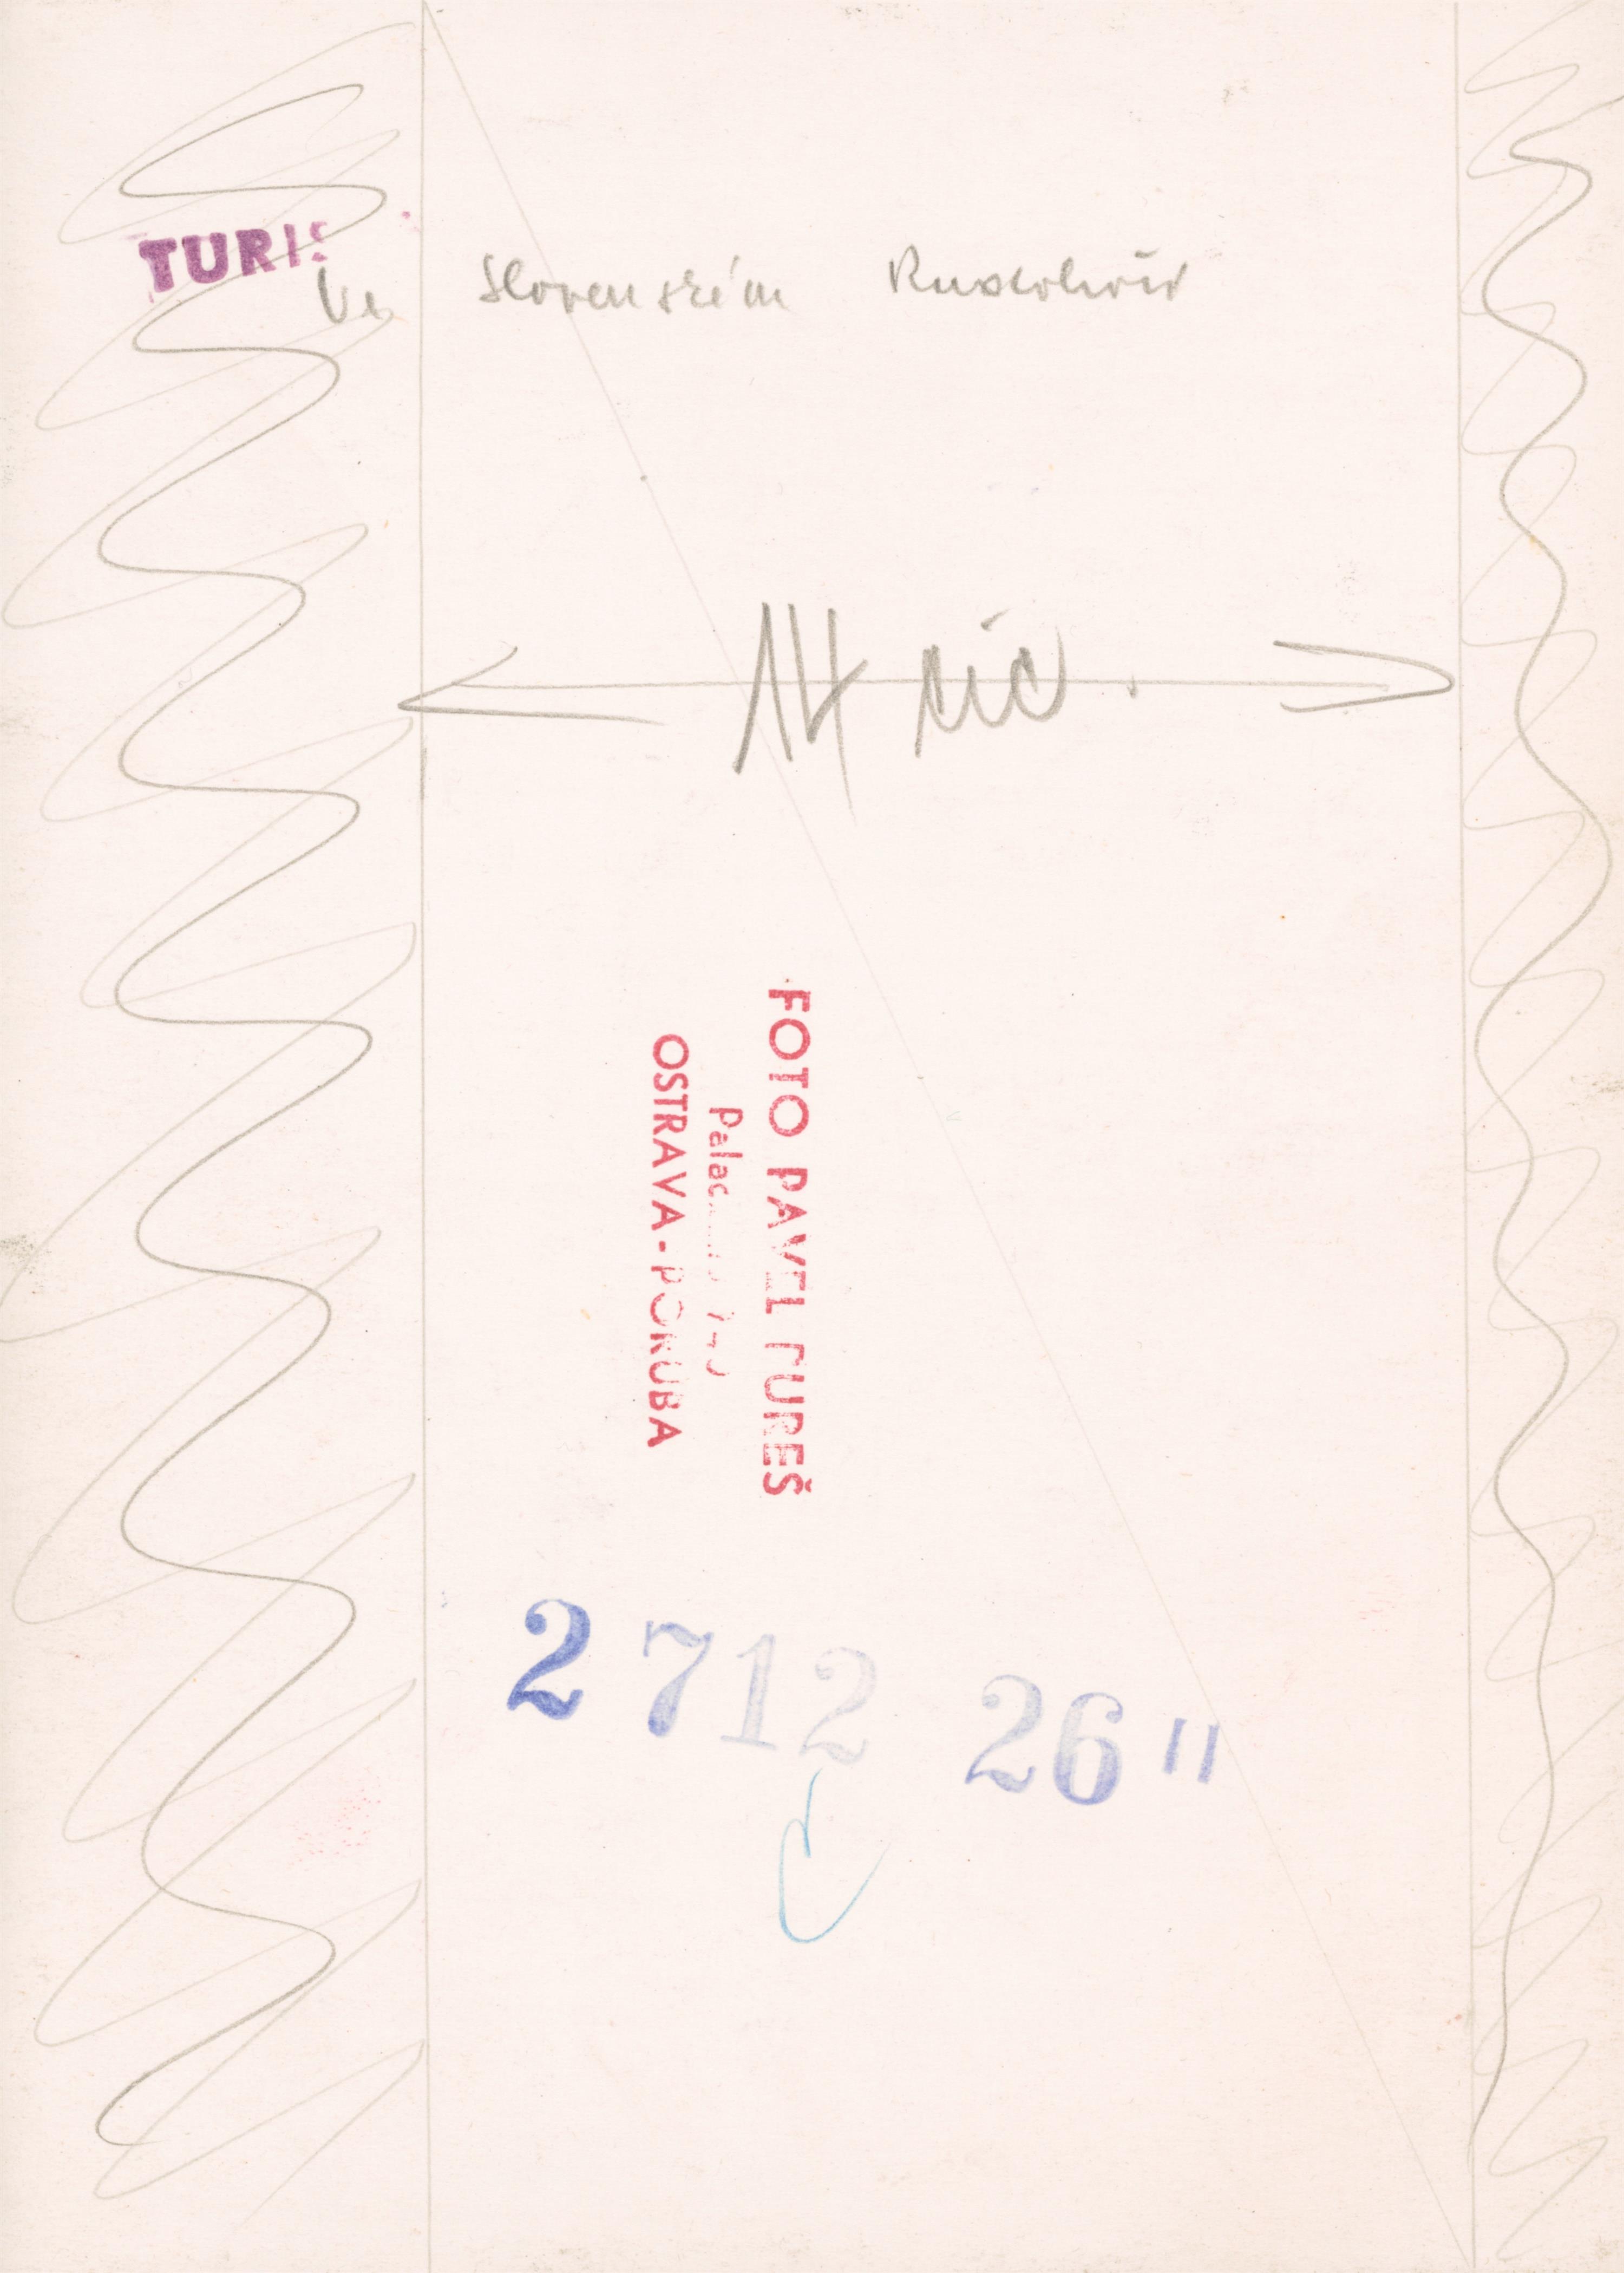 TURIS
Ve Slovenském Rudohoří
14 cic.
FOTO PAVEL FUREŠ
OSTRAVA-PORUBA
2712 26"